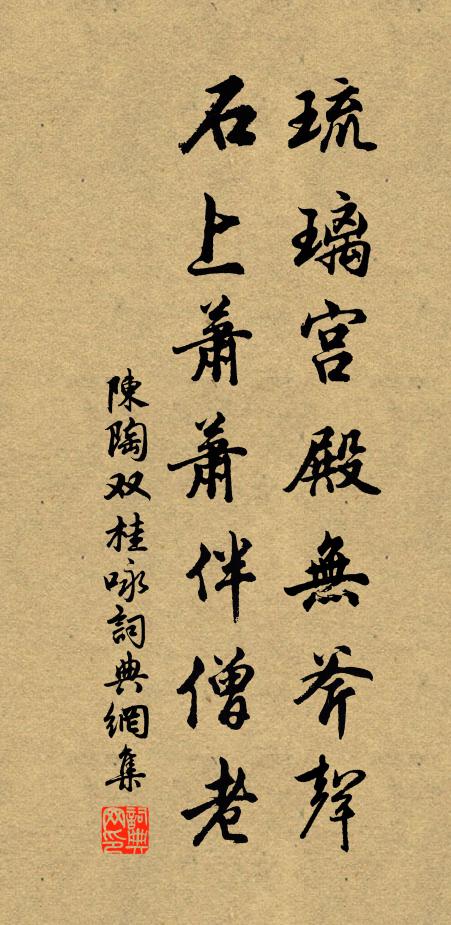 琉璃宫殿無斧聲
石上蕭蕭伴僧老
陳陶双桂咏詞典網集
詞典網印